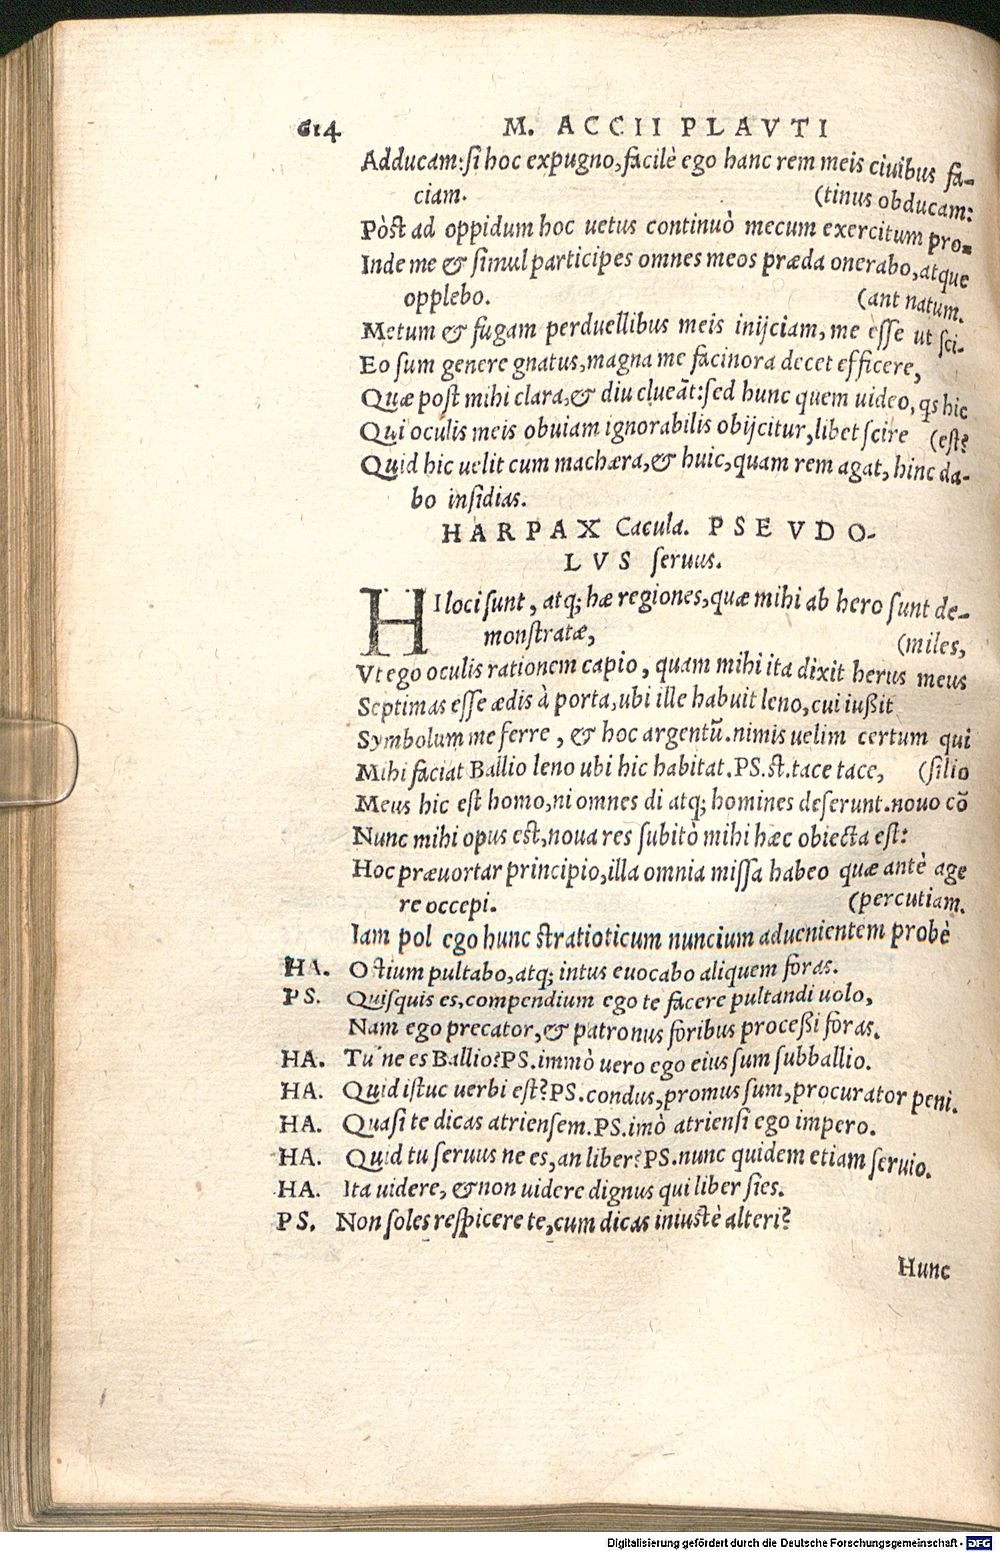 614 M. ACCII PLAVTI
Adducam:si hoc expugno,facilè ego hanc rem meis ciuibus fa-
ciam. (tinus obducam:
Pòst ad oppidum hoc uetus continuò mecum exercitum pro-
Inde me & simul participes omnes meos præda onerabo,atque
opplebo. (ant natum.
Metum & fugam perduellibus meis inijciam, me esse ut sci-
Eo sum genere gnatus,magna me facinora decet efficere,
Quæ post mihi clara,& diu clueāt:sed hunc quem uideo, qs hic
Qui oculis meis obuiam ignorabilis obijcitur,libet scire (est?
Quid hic uelit cum machæra,& huic,quam rem agat, hinc da-
bo insidias.
HARPAX Cacula. PSEVDO-
LVS seruus.
HI loci sunt, atq; hæ regiones,quæ mihi ab hero sunt de-
monstratæ, (miles,
Vt ego oculis rationem capio, quam mihi ita dixit herus meus
Septimas esse ædis à porta,ubi ille habuit leno,cui iußit
Symbolum me ferre, & hoc argentū.nimis uelim certum qui
Mihi faciat Ballio leno ubi hic habitat.PS.st.tace tace, (silio
Meus hic est homo,ni omnes di atq; homines deserunt.nouo cō
Nunc mihi opus est,noua res subitò mihi hæc obiecta est:
Hoc præuortar principio,illa omnia missa habeo quæ antè age
re occepi. (percutiam.
Iam pol ego hunc stratioticum nuncium aduenientem probè
HA. Ostium pultabo,atq; intus euocabo aliquem foras.
PS. Quisquis es,compendium ego te facere pultandi uolo,
Nam ego precator,& patronus foribus proceßi foras.
HA. Tu'ne es Ballio?PS.immò uero ego eius sum subballio.
HA. Quid istuc uerbi est?PS.condus,promus sum,procurator peni.
HA. Quasi te dicas atriensem.PS.imò atriensi ego impero.
HA. Quid tu seruus ne es,an liber?PS.nunc quidem etiam seruio.
HA. Ita uidere,&non uidere dignus qui liber sies.
PS. Non soles respicere te,cum dicas iniustè alteri?
Hunc
Digitalisierung gefördert durch die Deutsche Forschungsgemeinschaft - DFG